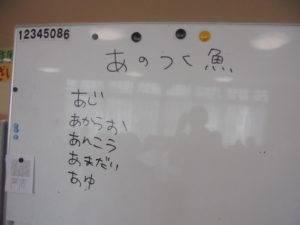 12345086
あのつく魚
あじ
あからお
あんこう
あまだい
あゆ